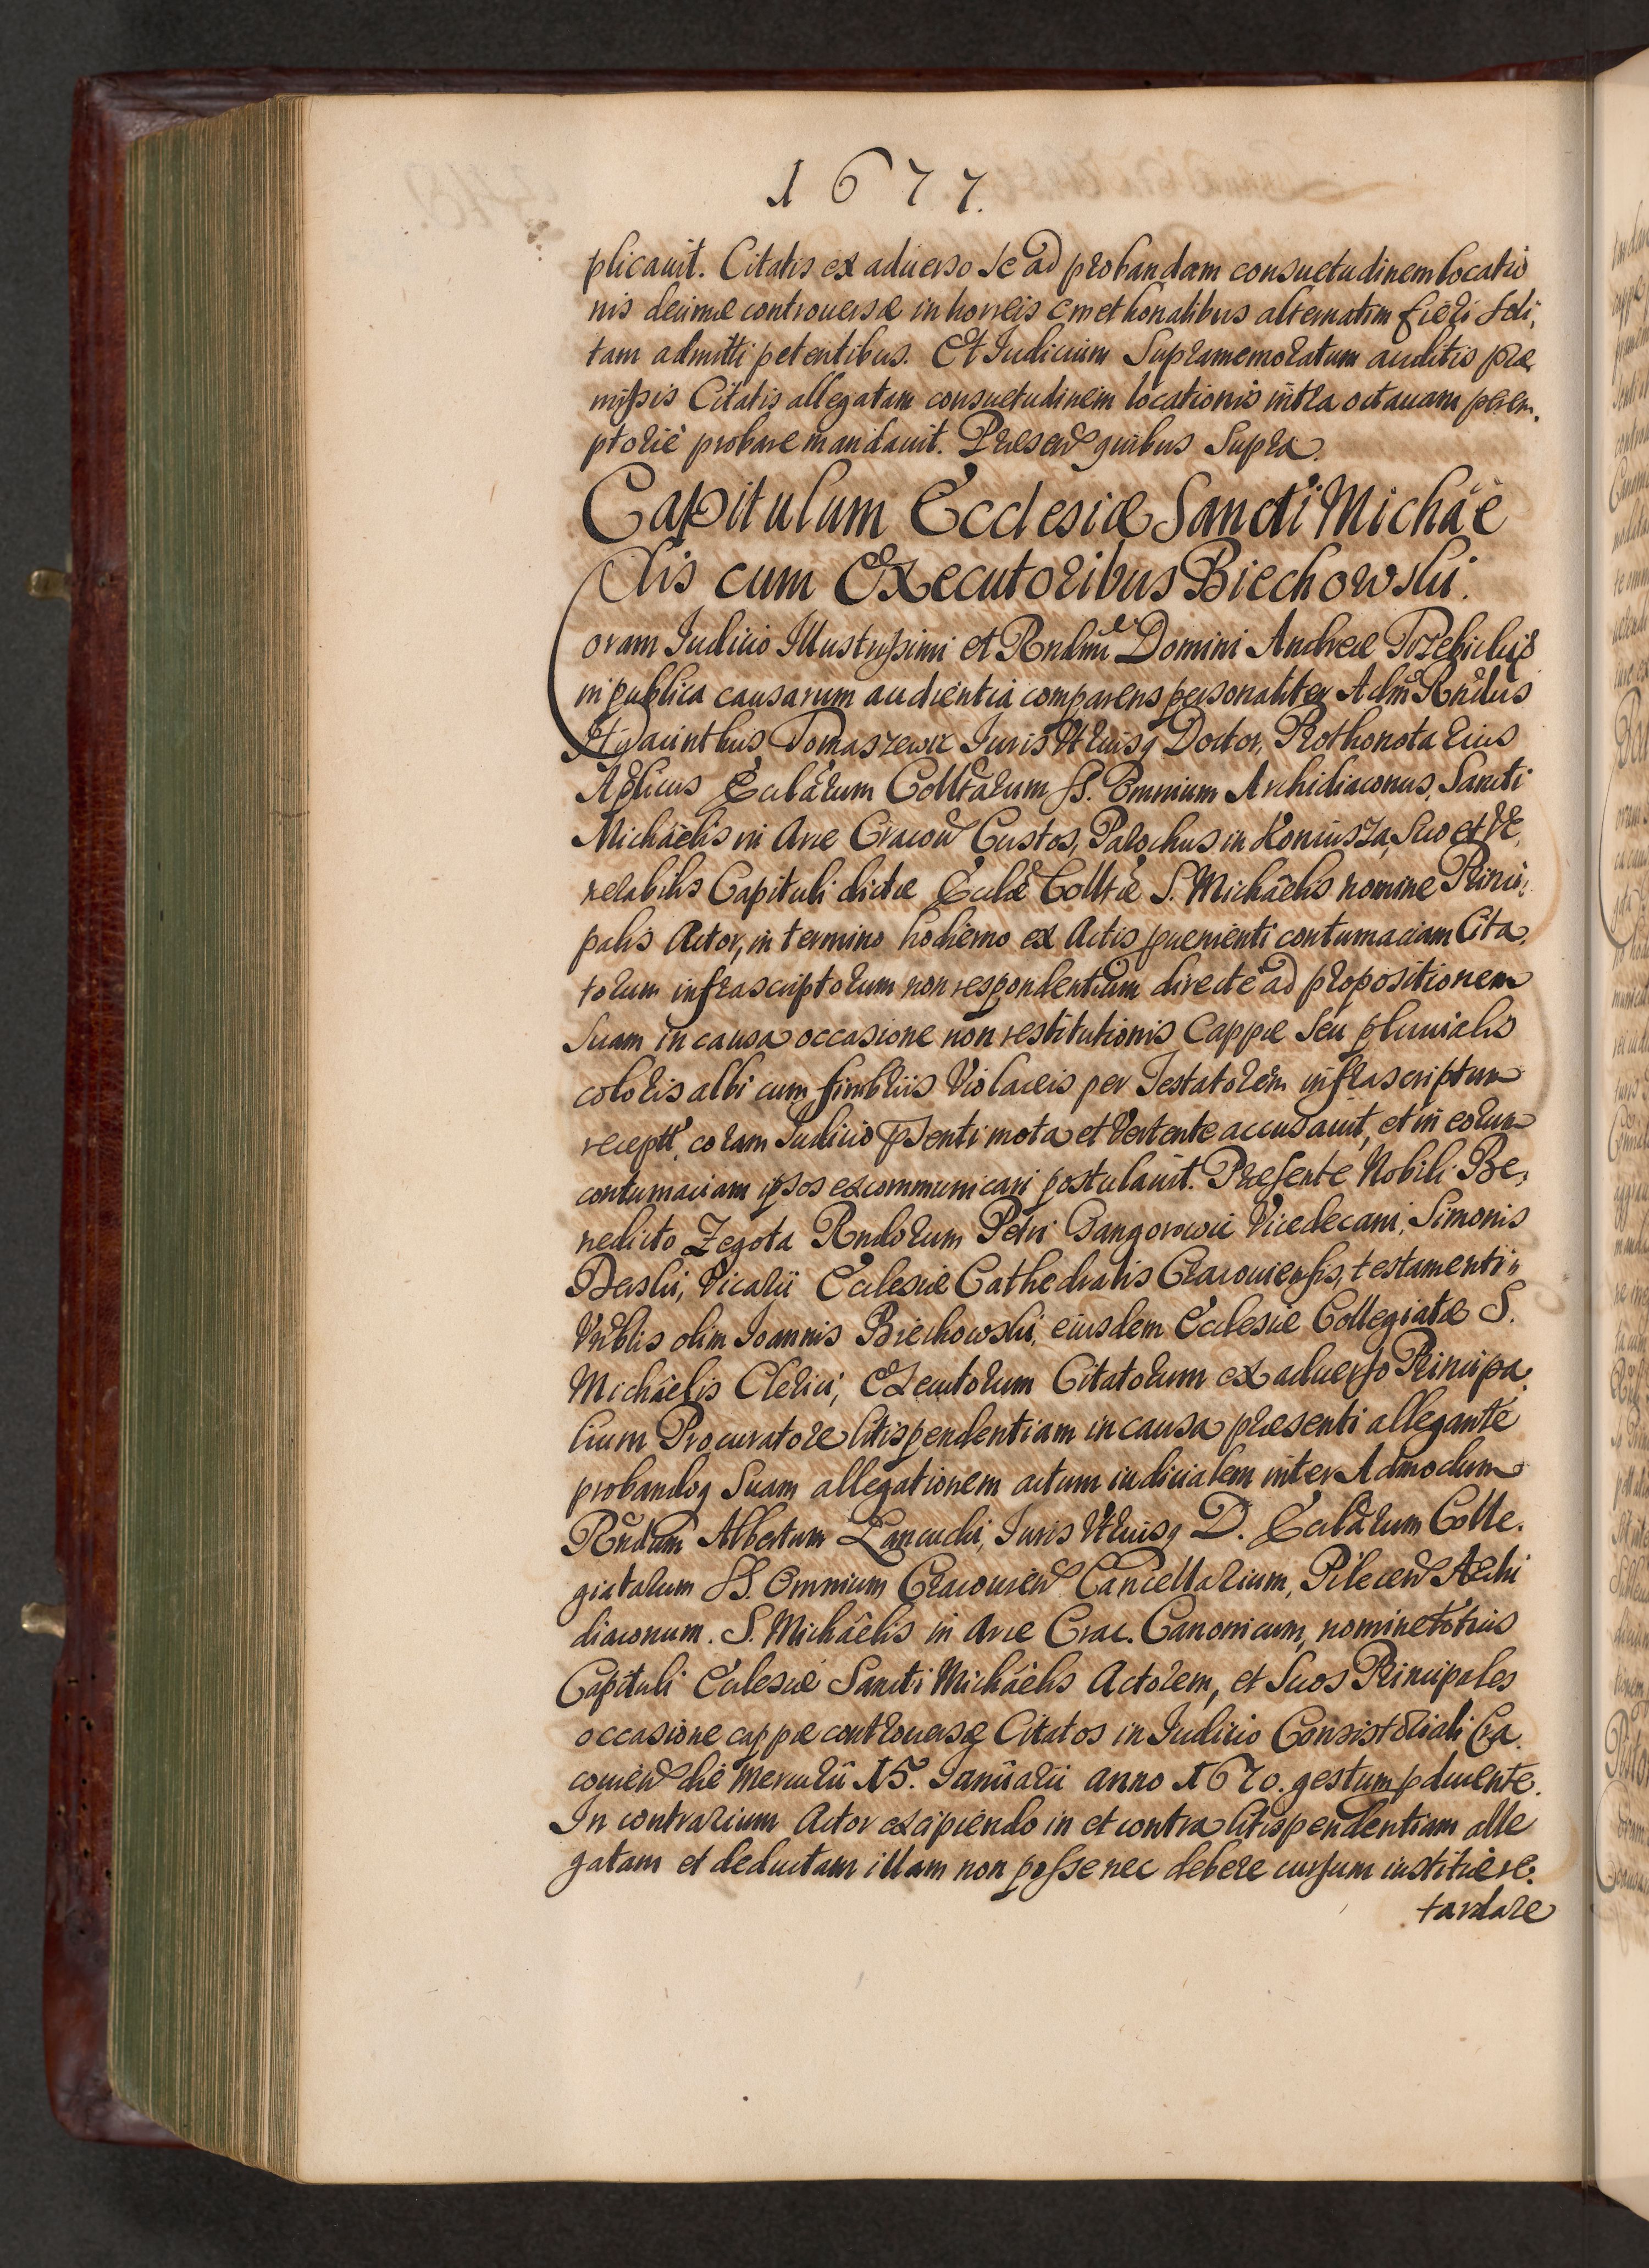 1677.
plicauit. Citatis ex aduerso se ad probandam consuetudinem locatio
nis decimæ controuersæ in horreis cmethonalibus alternatim fieri soli,
tam admitti petentibus. Et Iudicium Supramemoratum auditis præ,
missis Citatis allegatam consuetudinem locationis intra octauam perem,
ptoriè probare mandauit. Præsen quibus Supra.
Capitulum Ecclesiæ Sancti Michäe
lis cum Executoribus Biechowski.
Coram Iudicio Illustrissimi et Rndmi Domini Andreæ Trzebicki
in publica causarum audientia comparens personaliter Adm Rndus
Hyacinthus Tomaszewic Iuris Vtriusq Doctor, Prothonotarius
Aplicus Ecclarum Colltarum SS. Omnium Archidiaconus, Sancti
Michäelis in Arce Cracou Custos, Parochus in Koniusza, Suo et Ve,
nerabilis Capituli dictæ Ecclæ Colltæ S. Michäelis nomine Princi,
palis Actor, in termino hodierno ex Actis proueniénti contumaciam Cita,
torum infrascriptorum non respondentium directè ad propositionem
Suam in causa occasione non restitutionis Cappæ seu pluuialis
coloris albi cum fimbriis Violaceis per Testatorem infrascriptum
receptæ, coram Iudicio psenti mota et Vertente accusauit, et in eorum
contumaciam ipsos excommunicari postulauit. Præsente Nobili Be,
nedicto Zegota Rndorum Petri Gangorowic Vicedecani, Simonis
Deski, Vicarii Ecclesiæ Cathedralis Cracouiensis, testamenti
Vnblis olim Ioannis Biechowski, eiusdem Ecclesiæ Collegiatæ S.
Michäelis Clerici, Executorum Citatorum ex aduerso Principa
lium Procuratore litispendentiam in causa præsenti allegante
probandoq Suam allegationem actum iudicialem inter Admodum
Rndum Albertum Lancucki, Iuris Vtriusq D. Ecclarum Colle,
giatarum SS. Omnium Cracouien Cancellarium, Pilecen Archi
diaconum. S. Michäelis in Arce Crac. Canonicum, nomine totius
Capituli Ecclesiæ Sancti Michäelis Actorem, et Suos Principales
occasione cappæ controuersæ Citatos in Iudicio Consistoriali Cra
couien die Mercurii 15. Ianuarii anno 1670. gestum pducente.
In contrarium Actor excipiendo in et contra litispendentiam alle
gatam et deductam illam non posse nec debere cursum iustitiæ re,
tardare